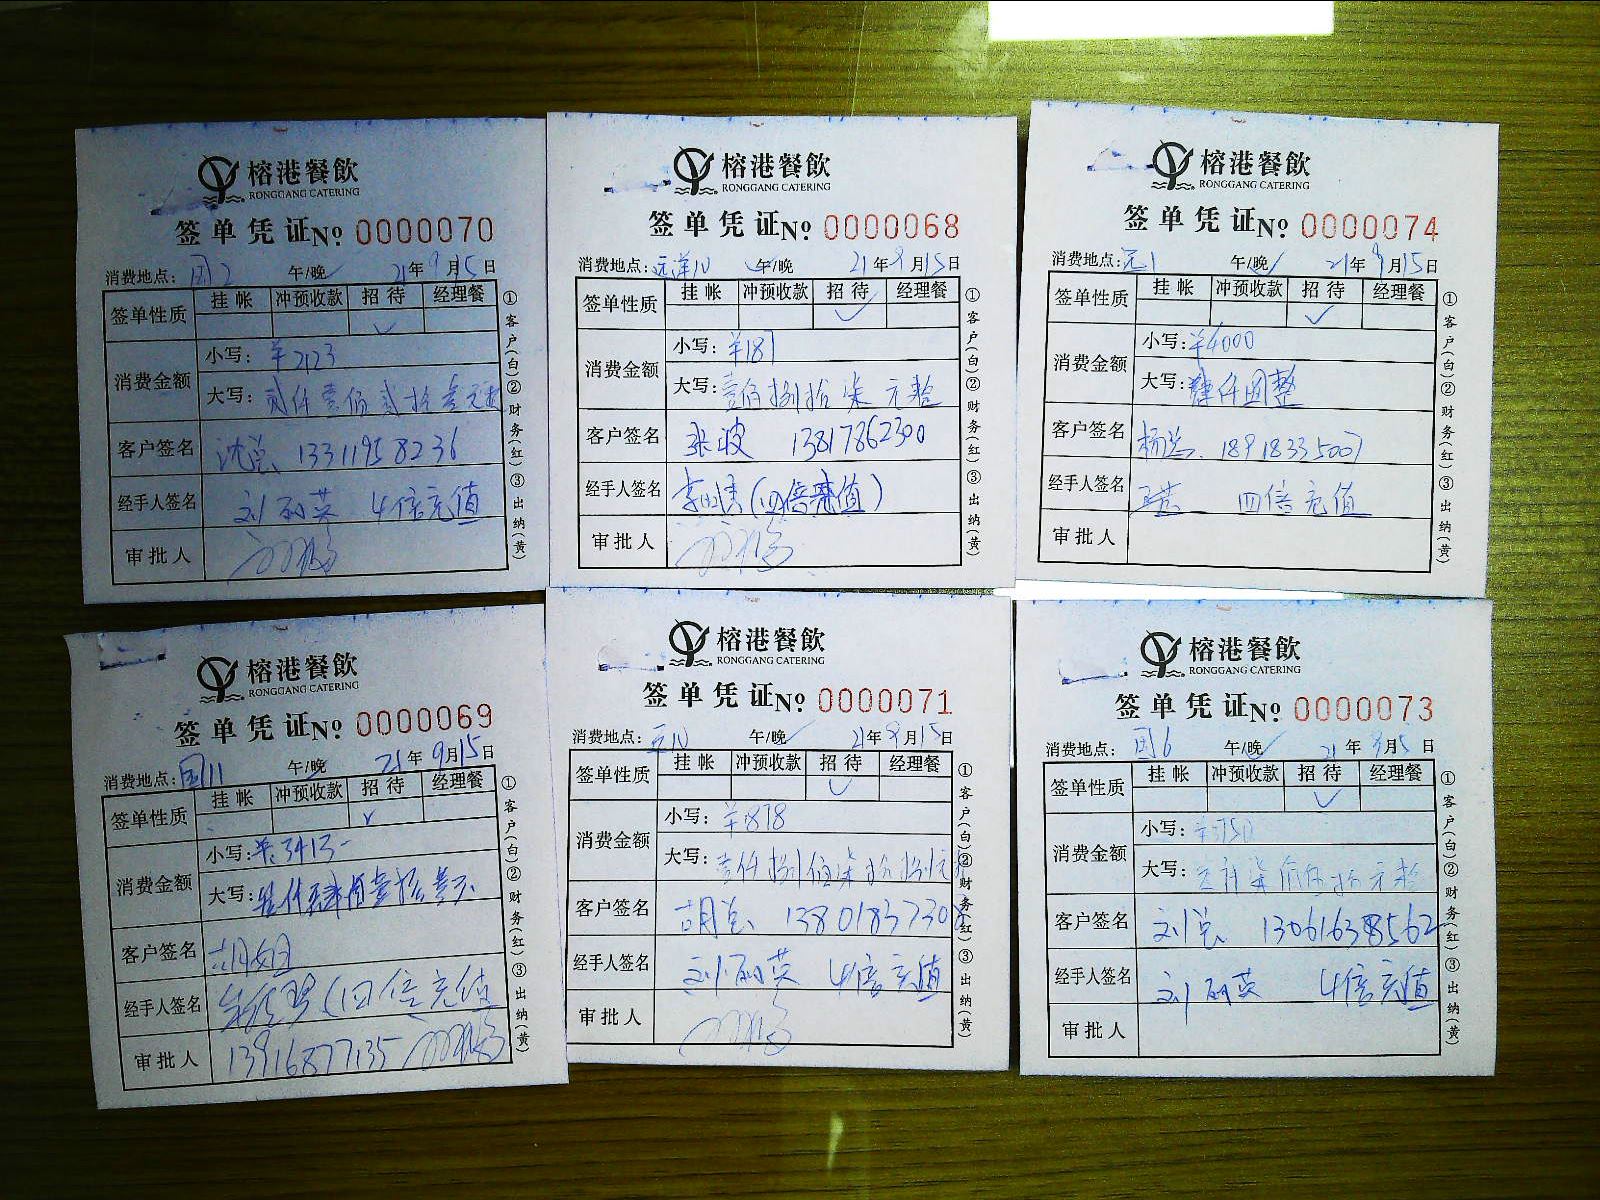 榕港餐飲
RONGGANG CATERING
签单凭证№ 0000070
消费地点: 午/晚 21年9月15日
签单性质 挂帐 冲预收款 招待 经理餐
消费金额
小写: ¥2123
大写: 贰仟壹佰贰拾叁元整
客户签名 沈总 13311958236
经手人签名 刘丽英 4倍充值
审批人
①客户(白)②财务(红)③出纳(黄)
榕港餐飲
RONGGANG CATERING
签单凭证№ 0000068
消费地点: 远洋10 午/晚 21年9月15日
签单性质 挂帐 冲预收款 招待 经理餐
消费金额
小写: ¥187
大写: 壹佰捌拾柒元整
客户签名 张波 13817862300
经手人签名 (四倍充值)
审批人
①客户(白)②财务(红)③出纳(黄)
榕港餐飲
RONGGANG CATERING
签单凭证№ 0000074
消费地点: 午/晚 21年9月15日
签单性质 挂帐 冲预收款 招待 经理餐
消费金额
小写: ¥4000
大写: 肆仟圆整
客户签名 杨总 18918335007
经手人签名 四倍充值
审批人
①客户(白)②财务(红)③出纳(黄)
榕港餐飲
RONGGANG CATERING
签单凭证№ 0000069
消费地点: 国11 午/晚 21年9月15日
签单性质 挂帐 冲预收款 招待 经理餐
消费金额
小写: ¥3413-
大写:
客户签名 胡姐
经手人签名 (四倍充值
审批人 13916877135
①客户(白)②财务(红)③出纳(黄)
榕港餐飲
RONGGANG CATERING
签单凭证№ 0000071
消费地点: 午/晚 21年9月15日
签单性质 挂帐 冲预收款 招待 经理餐
消费金额
小写: ¥1878
大写: 壹仟捌佰柒拾捌元
客户签名 胡总 1380183730
经手人签名 刘丽英 4倍充值
审批人
①客户(白)②财务(红)③出纳(黄)
榕港餐飲
RONGGANG CATERING
签单凭证№ 0000073
消费地点: 国6 午/晚 21年9月15日
签单性质 挂帐 冲预收款 招待 经理餐
消费金额
小写:
大写:
客户签名 刘总 13061638562
经手人签名 刘丽英 4倍充值
审批人
①客户(白)②财务(红)③出纳(黄)